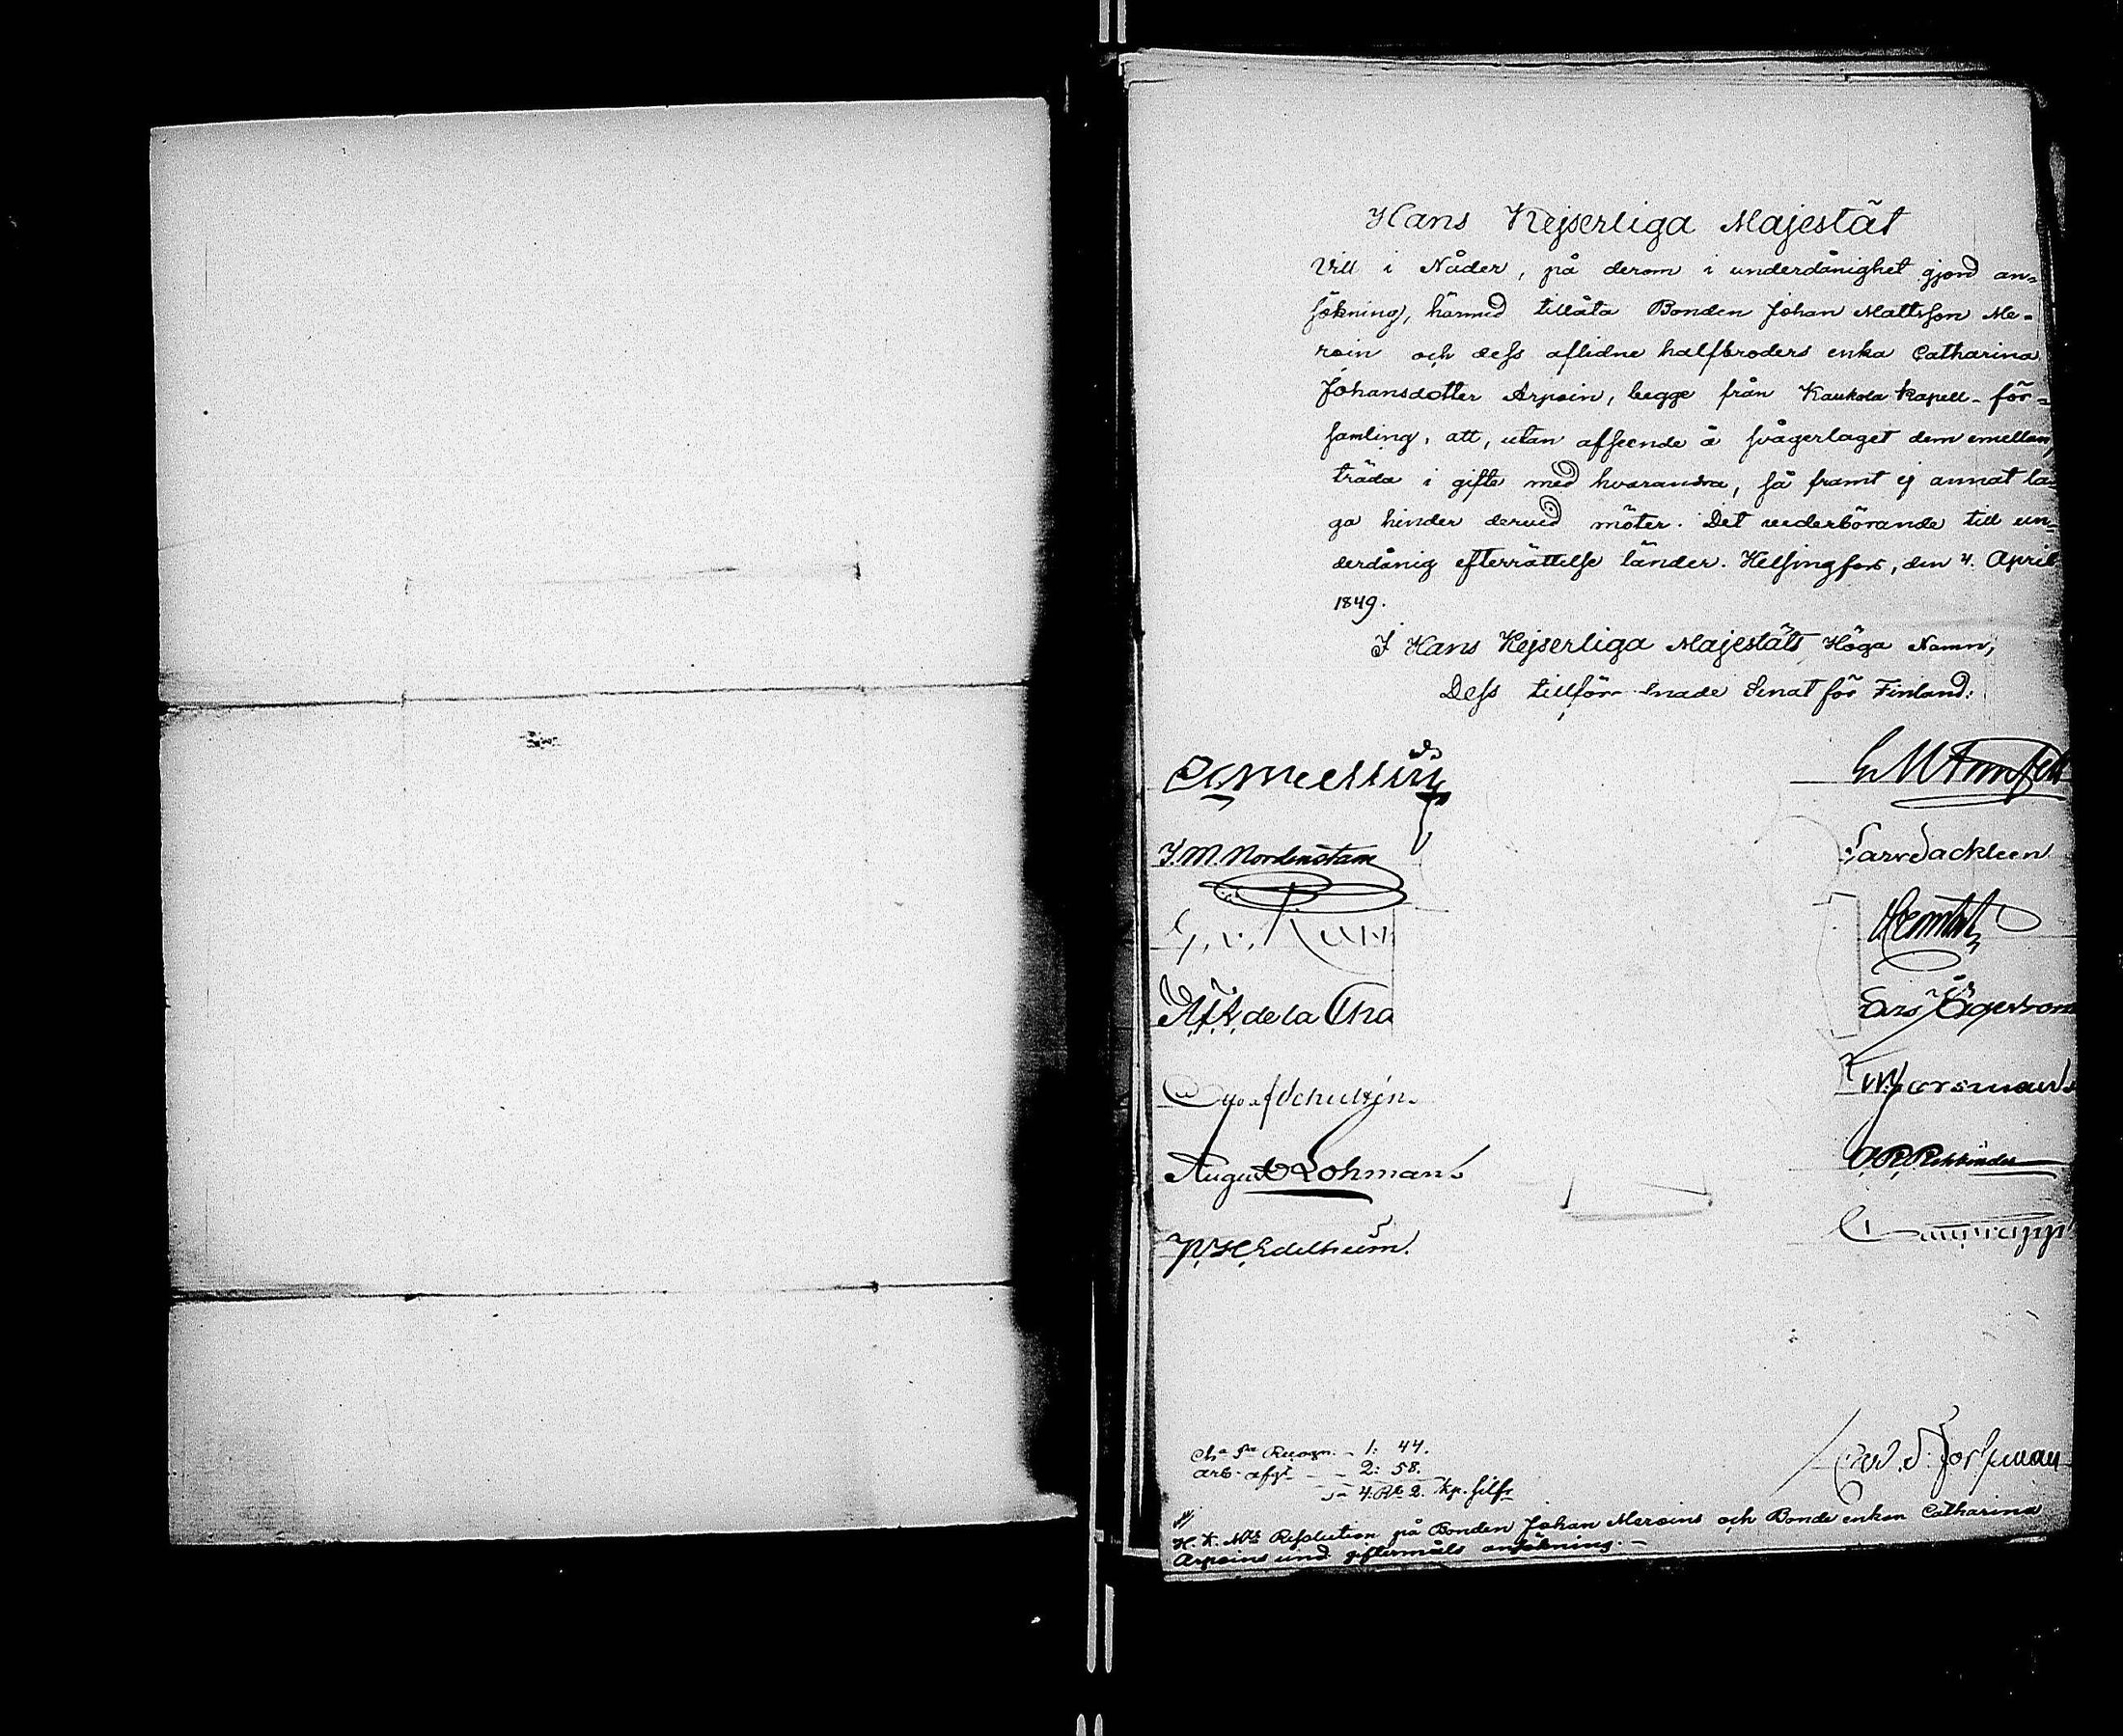 Hans Kejserliga Majestät
Vill i Nåder, på derom i underdånighet gjord an-
sökning, härmed tillåta Bonden Johan Mattsson Me-
roin och dess aflidne halfbroders enka Catharina
Johansdotter Arpoin, begge från Kaukola kapell-för-
samling, att, utan afseende å svågerlaget dem emellan,
träda i gifte med hvarandra, så framt ej annat la-
ga hinder dervid möter. Det vederbörande till un-
derdånig efterrättelse länder. Helsingfors, den 4. April
1849.
I Hans Kejserliga Majestäts Höga Namn,
Dess tillförordnade Senat för Finland:
J. M. Nordenstam
de la Cha
af Schultén.
August Lohman
P. H. Edelheim.
Lars Sackleen
Rehbinder
Cha Sta Recogn. – 1: 44.
Arb. afgt – – 2: 58.
Sa 4. Rb. 2. kp. silfr
H. K. Mts Resolution på Bonden Johan Meroins och Bonde enkan Catharina
Arpoins und. giftermåls ansökning. –